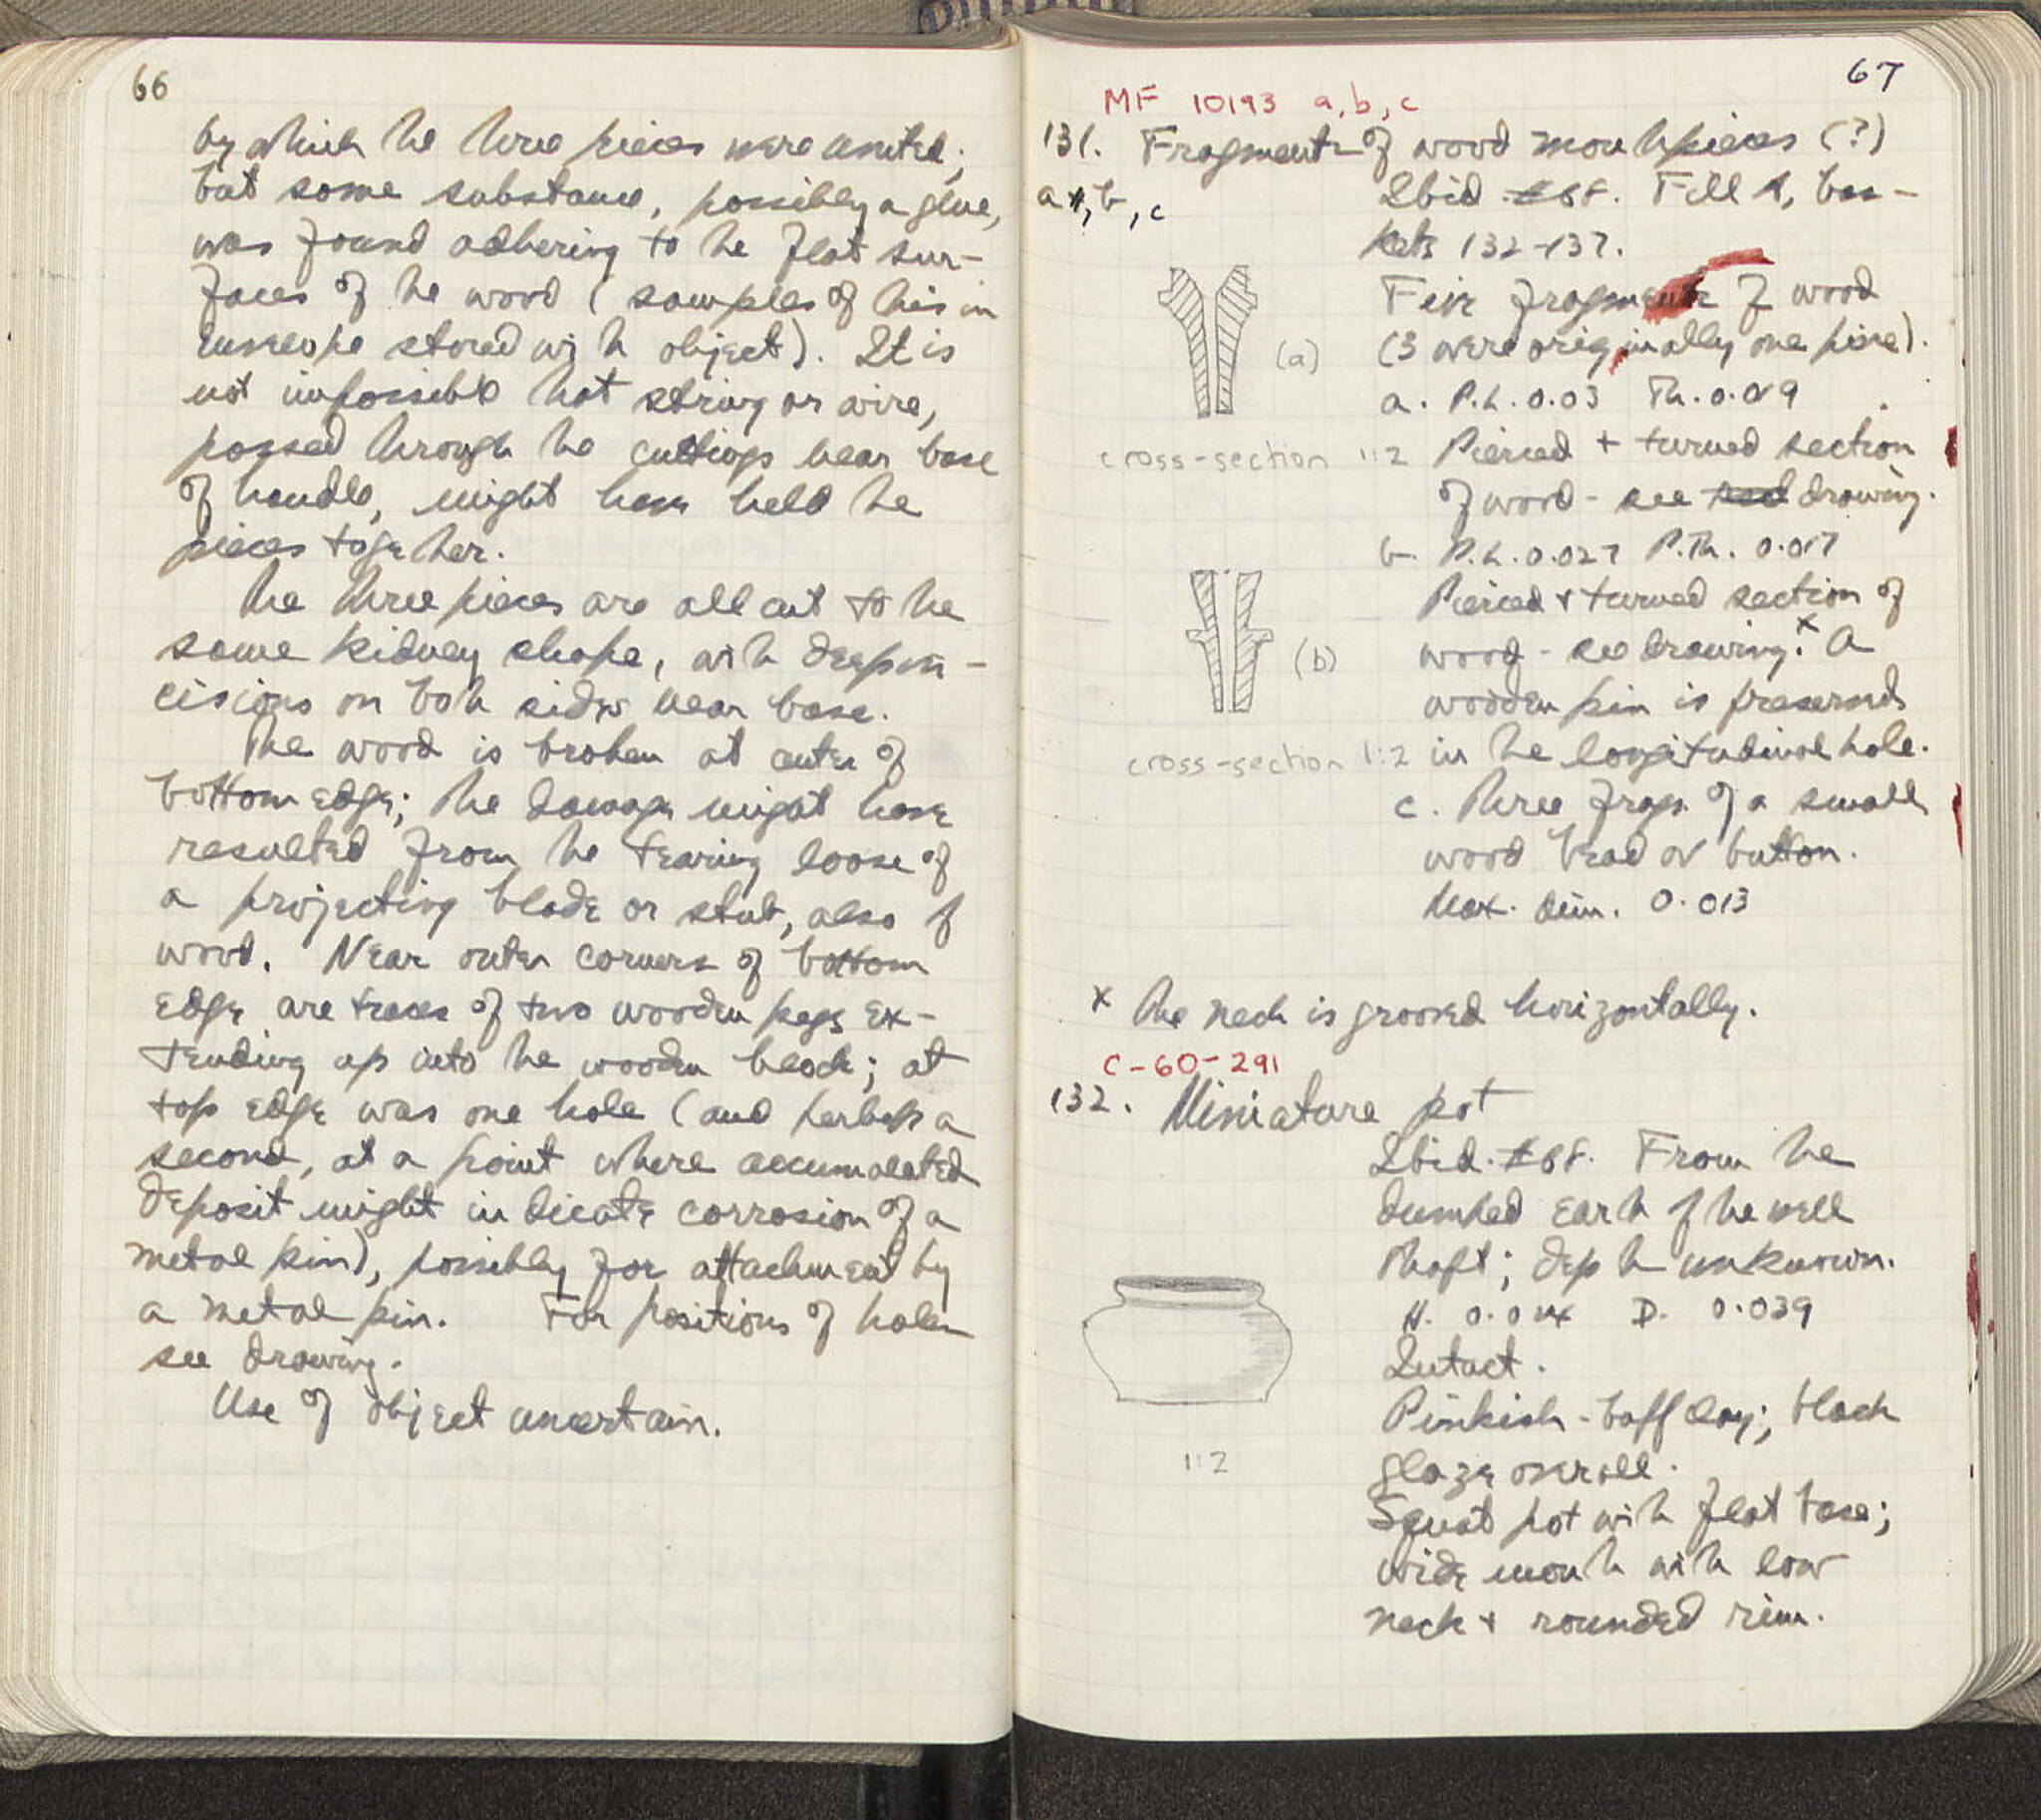 66
by which the three pieces were united;
but some substance, possibly a glue,
was found adhering to the flat sur-
faces of the wood (samples of this in
envelope stored with object). It is
not impossible that string or wire,
passed through the cuttings near base
of handle, might have held the
pieces together.
The three pieces are all cut to the
same kidney shape, with deep in-
cisions on both sides near base.
The wood is broken at center of
bottom edge; the damage might have
resulted from the tearing loose of
a projecting blade or stub, also of
wood. Near outer corners of bottom
edge are traces of two wooden pegs ex-
tending up into the wooden block; at
top edge was one hole (and perhaps a
second, at a point where accumulated
deposit might indicate corrosion of a
metal pin), possibly for attachment by
a metal pin. For positions of holes
see drawing.
Use of object uncertain.
67
MF 10193 a, b, c
131. Fragments of wood mouthpieces (?)
a, b, c
Ibid. 68. Fill 1, bas-
kets 132-137.
Five fragments of wood
(3 were originally one piece).
(a)
a. P.L. 0.03 Th. 0.019
cross-section 1:2
Pierced + turned section
of wood - see drawing.
b. P.L. 0.027 P.Th. 0.017
Pierced + turned section of
(b)
wood - see drawing.x A
wooden pin is preserved
cross-section 1:2
in the longitudinal hole.
c. Three frags. of a small
wood bead or button.
Max. dim. 0.013
x The neck is grooved horizontally.
C-60-291
132. Miniature pot
Ibid. 68. From the
dumped earth of the well
shaft; depth unknown.
H. D. 0.039
Intact.
Pinkish-buff clay; black
1:2
glaze overall.
Squat pot with flat base;
wide mouth with low
neck + rounded rim.